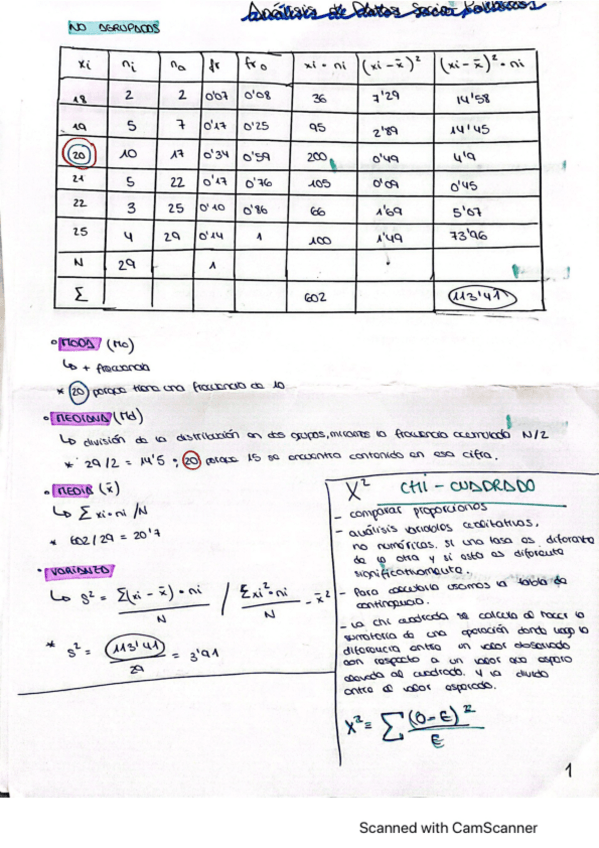 Análisis de Datos Socio Políticos
NO AGRUPADOS
xi ni na fr fra xi · ni (xi - x̄)² (xi - x̄)² · ni
18 2 2 0'07 0'08 36 7'29 14'58
19 5 7 0'17 0'25 95 2'89 14'45
20 10 17 0'34 0'59 200 0'49 4'9
21 5 22 0'17 0'76 105 0'09 0'45
22 3 25 0'10 0'86 66 1'69 5'07
25 4 29 0'14 1 100 1'49 73'96
N 29 1
Σ 602 113'41
• MODA (Mo)
↳ + frecuencia
* 20 porque tiene una frecuencia de 10
• MEDIANA (Md)
↳ división de la distribución en dos grupos, miramos la frecuencia acumulada N/2
* 29/2 = 14'5 ; 20 porque 15 se encuentra contenido en esa cifra.
• MEDIA (x̄)
↳ Σ xi · ni /N
* 602/29 = 20'7
• VARIANZA
↳ s² = Σ(xi - x̄) · ni / N / Σxi² · ni / N - x̄²
* s² = 113'41 / 29 = 3'91
X² CHI - CUADRADO
- comparar proporciones
- análisis variables cualitativas,
no numéricas. si una tasa es diferente
de la otra y si esta es diferente
significativamente.
- Para calcularla usamos la tabla de
contingencia.
- La chi cuadrada se calcula al hacer la
sumatoria de una operación donde hago la
diferencia entre un valor observado
con respecto a un valor que espero
elevada al cuadrado, y la divido
entre el valor esperado.
X² = Σ (O-E)² / E
1
Scanned with CamScanner